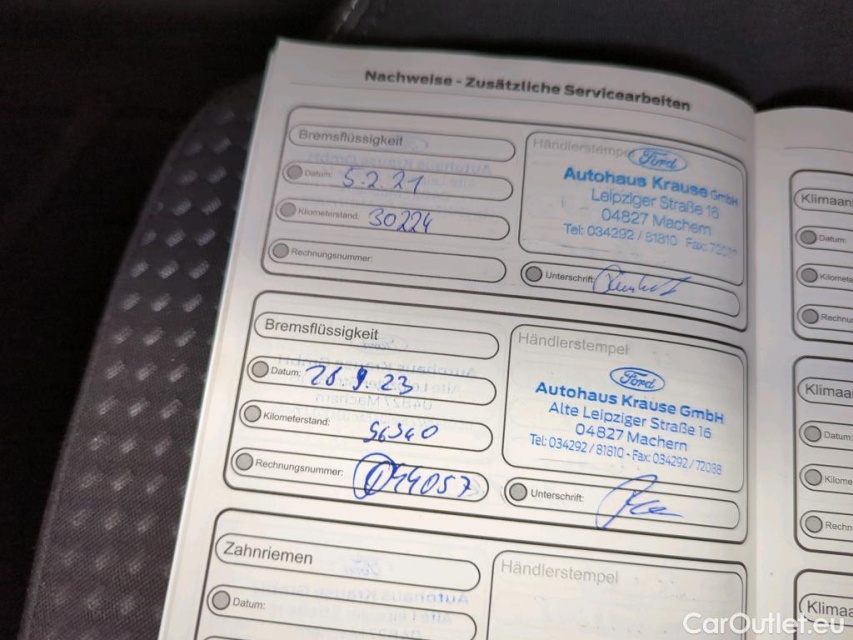 Nachweise - Zusätzliche Servicearbeiten
Bremsflüssigkeit
Datum: 5.2.21
Kilometerstand: 30224
Rechnungsnummer:
Händlerstempel
Ford
Autohaus Krause GmbH
Leipziger Straße 16
04827 Machern
Tel: 034292 / 81810 - Fax:
Unterschrift
Bremsflüssigkeit
Datum: 9.23
Kilometerstand: 56340
Rechnungsnummer: 044057
Händlerstempel
Ford
Autohaus Krause GmbH
Alte Leipziger Straße 16
04827 Machern
Tel: 034292/81810 - Fax: 034292/72038
Unterschrift:
Zahnriemen
Datum:
Händlerstempel
Datum:
CarOutlet.eu